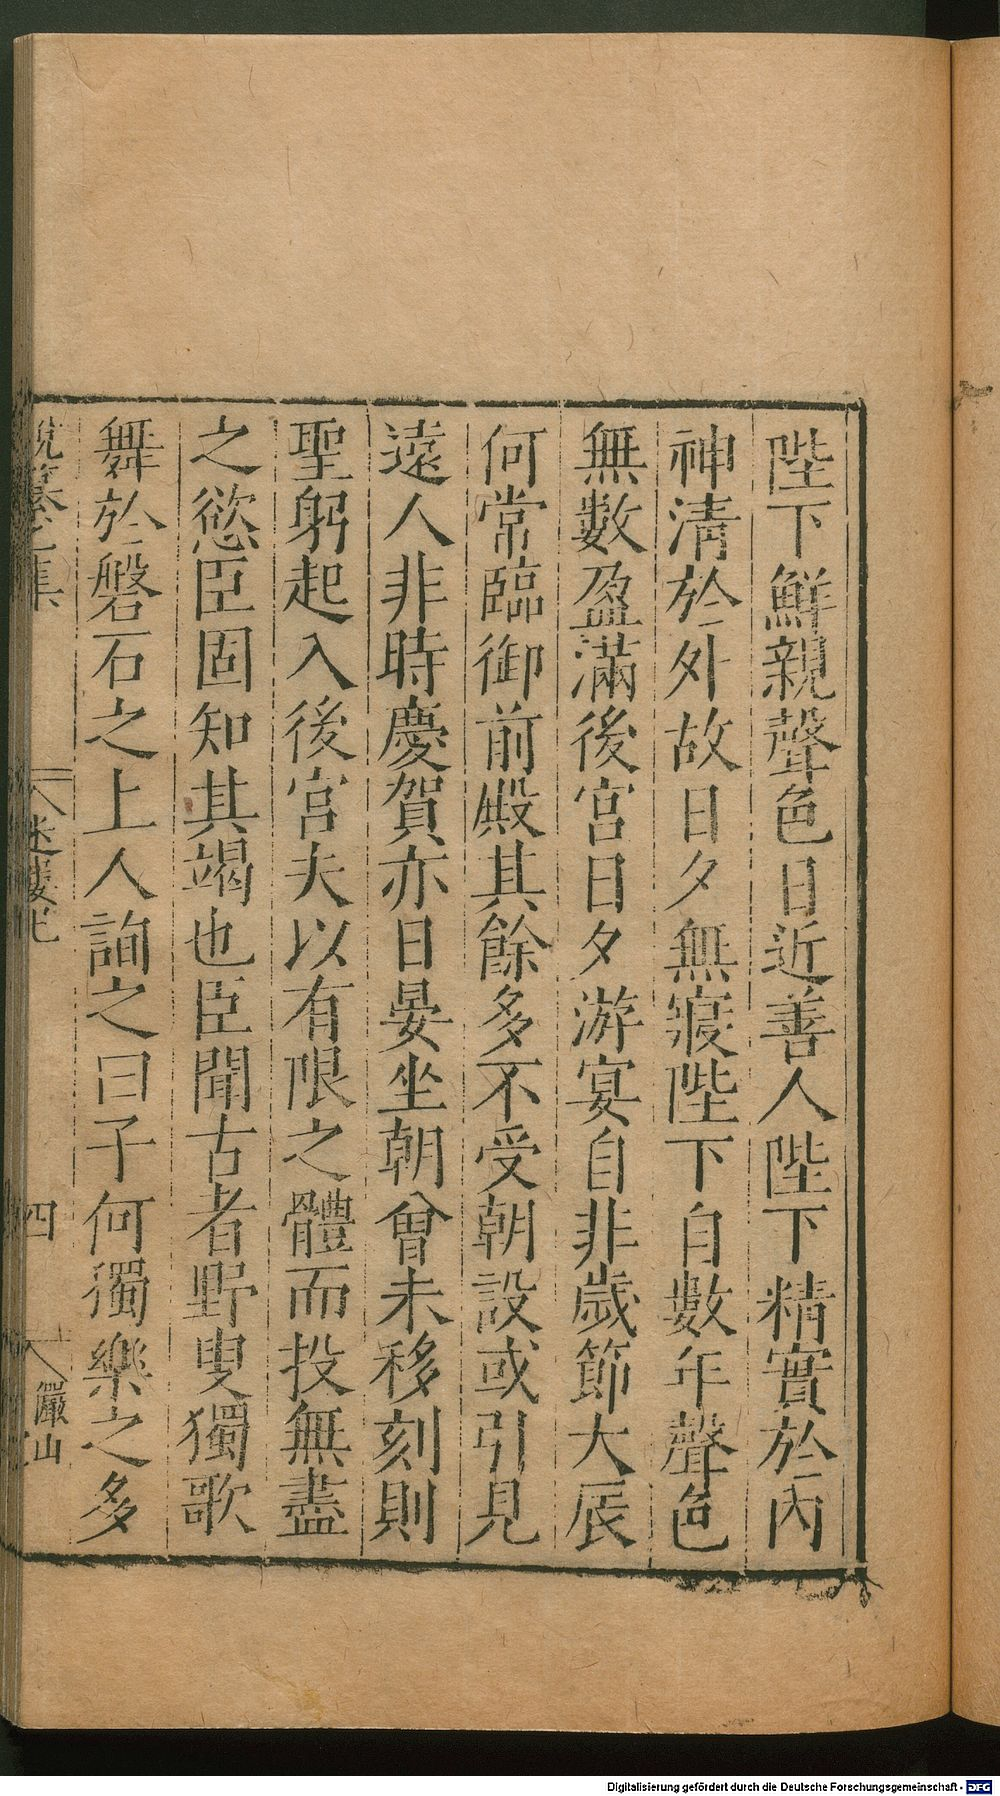 陛下鮮親聲色日近善人陛下精實於內
神清於外故日夕無寢陛下自數年聲色
無數盈滿後宮日夕游宴自非歲節大辰
何常臨御前殿其餘多不受朝設或引見
遠人非時慶賀亦日晏坐朝曾未移刻則
聖躬起入後宮夫以有限之體而投無盡
之慾臣固知其竭也臣聞古者野叟獨歌
舞於磐石之上人詢之曰子何獨樂之多
說纂之集
迷樓七
四
儼山
Digitalisierung gefördert durch die Deutsche Forschungsgemeinschaft - DFG